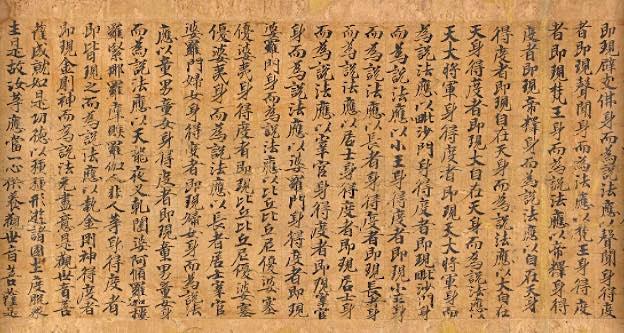 即現辟支佛身而為說法應以聲聞身得度
者即現聲聞身而為說法應以梵王身得度
者即現梵王身而為說法應以帝釋身得
度者即現帝釋身而為說法應以自在天身
得度者即現自在天身而為說法應以大自在
天身得度者即現大自在天身而為說法應以
天大將軍身得度者即現天大將軍身而
為說法應以毗沙門身得度者即現毗沙門身
而為說法應以小王身得度者即現小王身
而為說法應以長者身得度者即現長者身
而為說法應以居士身得度者即現居士身
而為說法應以宰官身得度者即現宰官
身而為說法應以婆羅門身得度者即現
婆羅門身而為說法應以比丘比丘尼優婆塞
優婆夷身得度者即現比丘比丘尼優婆塞
優婆夷身而為說法應以長者居士宰官
婆羅門婦女身得度者即現婦女身而為說法
應以童男童女身得度者即現童男童女身
而為說法應以天龍夜叉乾闥婆阿脩羅迦樓
羅緊那羅摩睺羅伽人非人等身得度者
即皆現之而為說法應以執金剛神得度者
即現金剛神而為說法无盡意是觀世音菩
薩成就如是功德以種種形遊諸國土度脫眾
生是故汝等應當一心供養觀世音菩薩